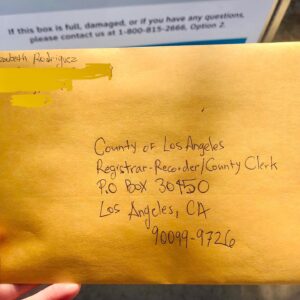 If this box is full, damaged, or if you have any questions,
please contact us at 1-800-815-2666, Option 2.
zabeth Rodriguez
County of Los Angeles
Registrar-Recorder/County Clerk
P.O Box 30450
Los Angeles, CA
90099-9726